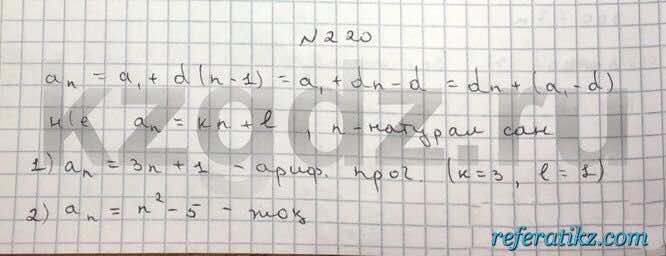 N 220
aₙ = a₁ + d(n-1) = a₁ + dn - d = dn + (a₁ - d)
н/е aₙ = kn + l , n - натурал сан
1) aₙ = 3n + 1 - ариф. прог. (k=3, l=1)
2) aₙ = n² - 5 - жоқ
kzgdz.ru
referatikz.com